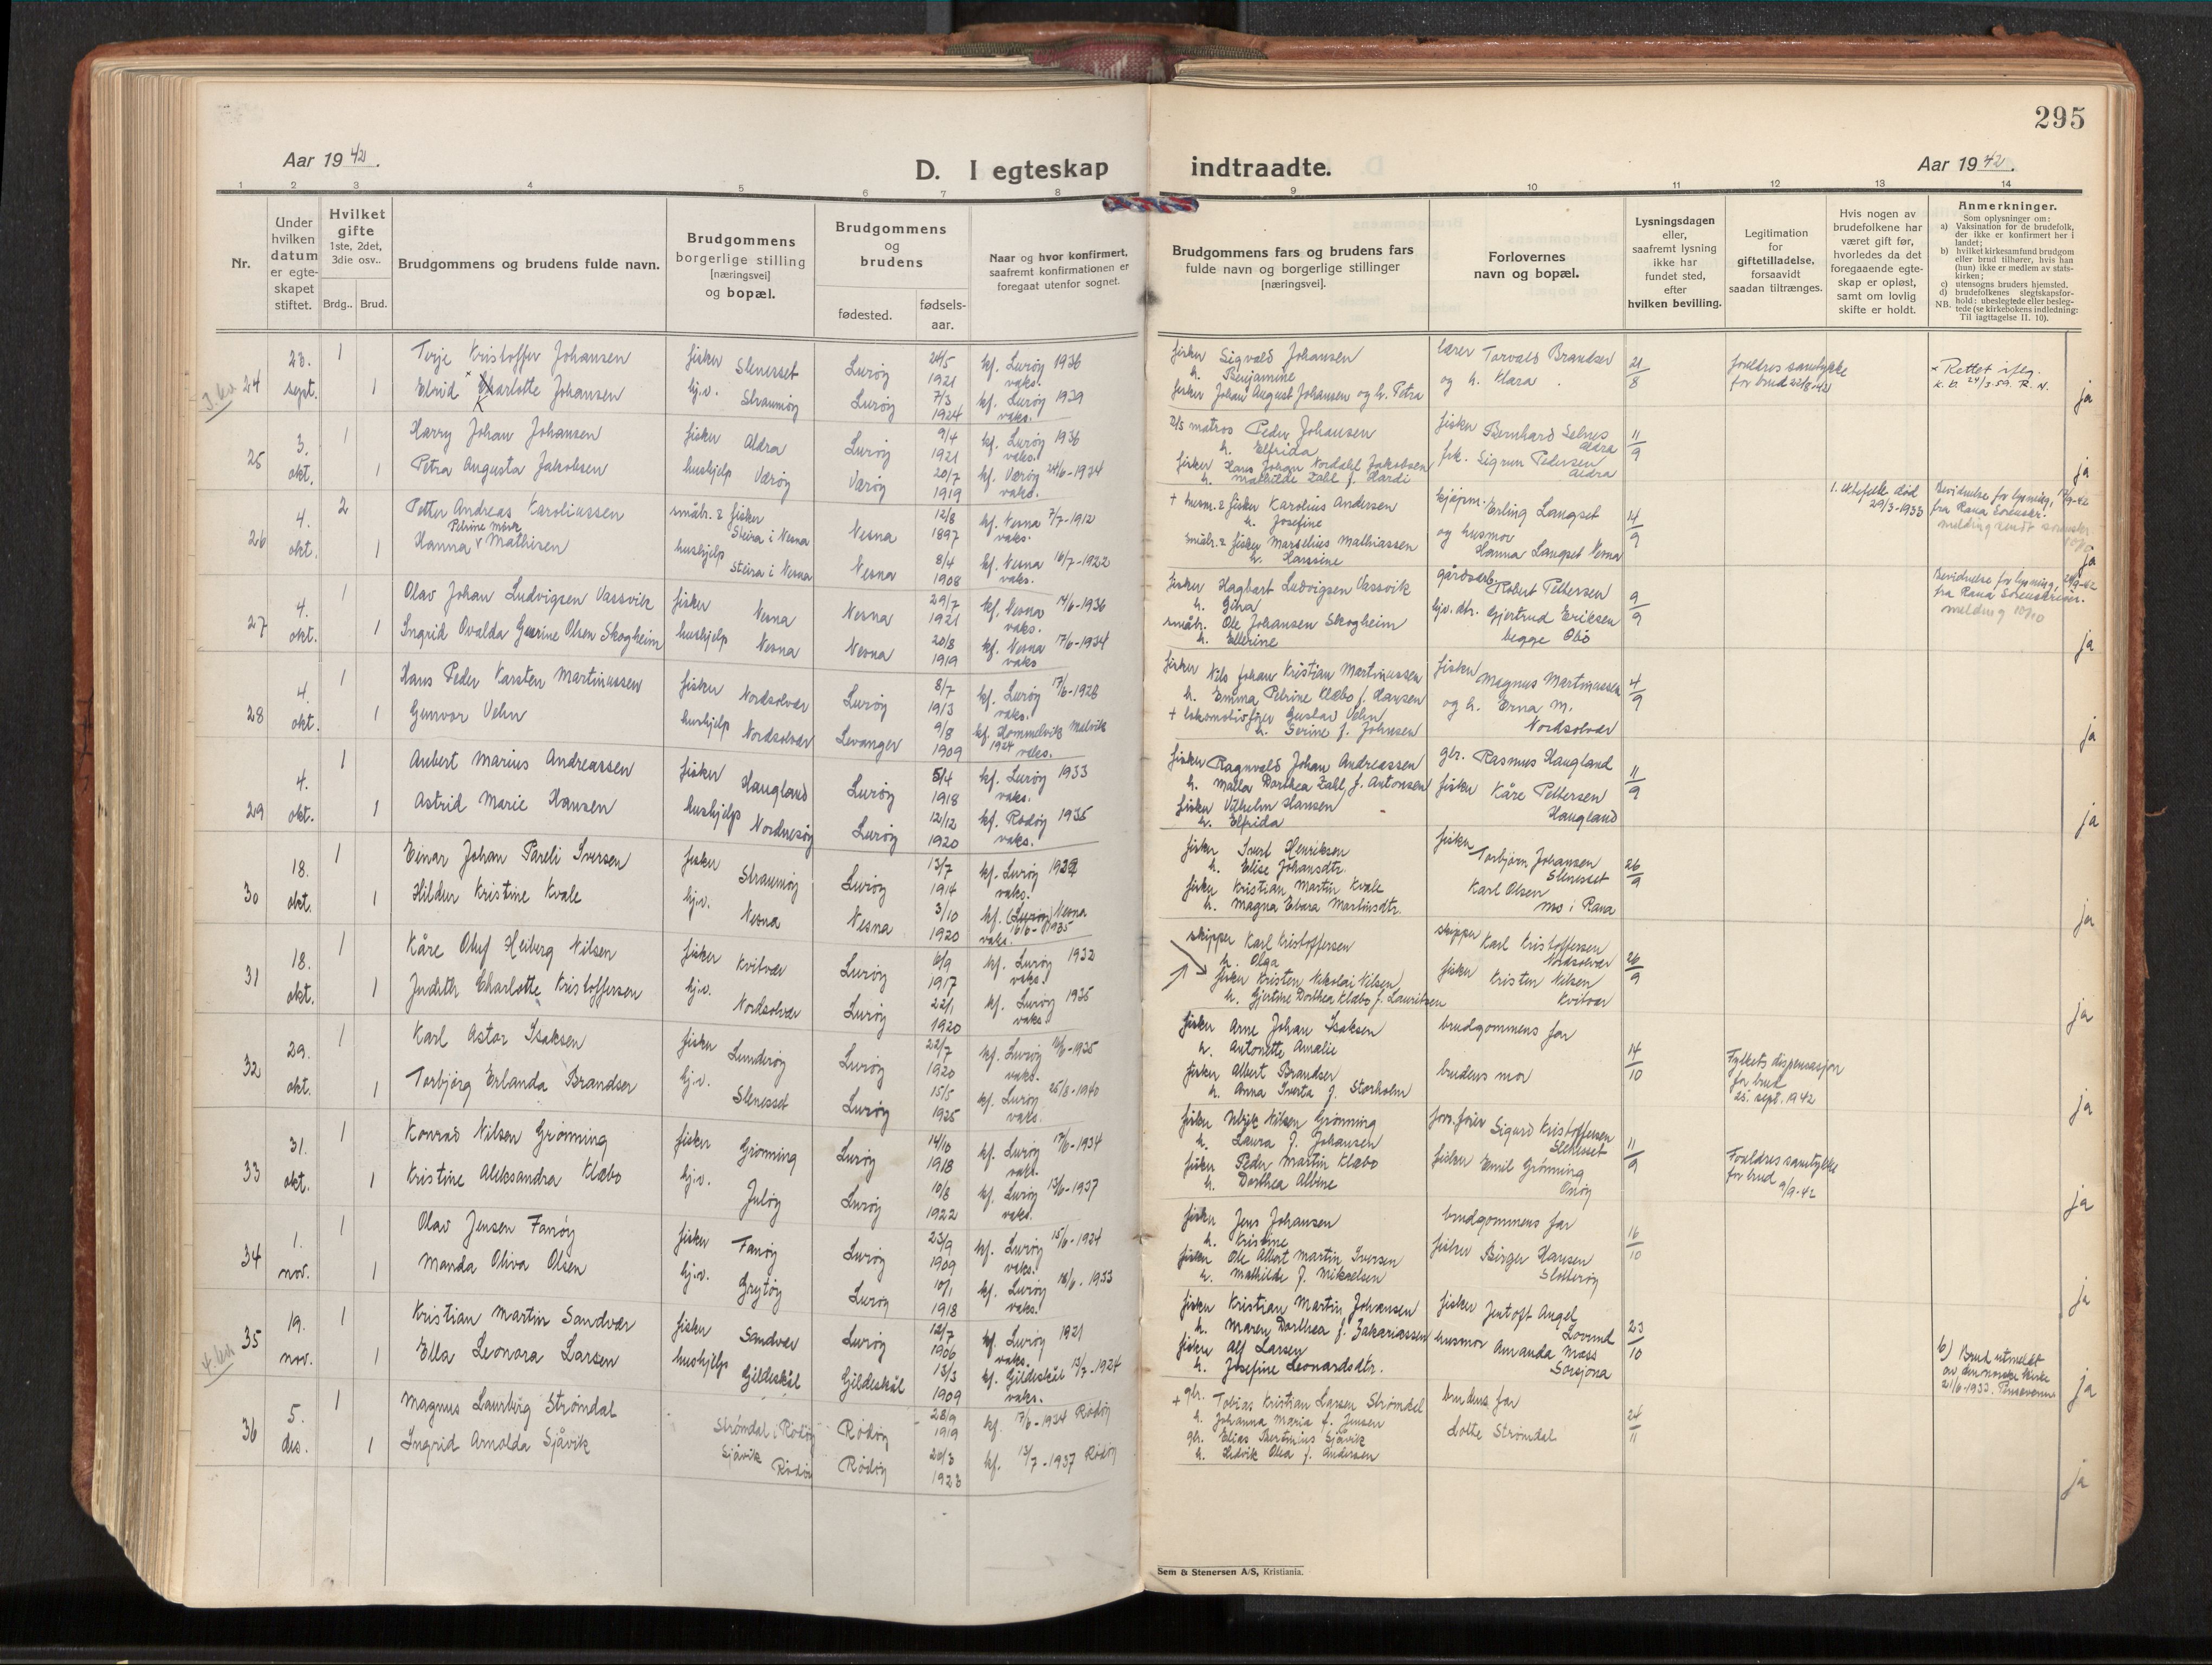 295
Aar 1942.
D. I egteskap indtraadte.
Aar 1942.
1 2 3 4 5 6 7 8 9 10 11 12 13 14
Nr.
Under hvilken datum er egteskapet stiftet.
Hvilket gifte 1ste, 2det, 3die osv..
Brdg.. Brud.
Brudgommens og brudens fulde navn.
Brudgommens borgerlige stilling [næringsvei] og bopæl.
Brudgommens og brudens
fødested.
fødsels-aar.
Naar og hvor konfirmert, saafremt konfirmationen er foregaat utenfor sognet.
Brudgommens fars og brudens fars fulde navn og borgerlige stillinger [næringsvei].
Forlovernes navn og bopæl.
Lysningsdagen eller, saafremt lysning ikke har fundet sted, efter hvilken bevilling.
Legitimation for giftetilladelse, forsaavidt saadan tiltrænges.
Hvis nogen av brudefolkene har været gift før, hvorledes da det foregaaende egteskap er opløst, samt om lovlig skifte er holdt.
Anmerkninger.
Som oplysninger om:
a) Vaksination for de brudefolk, der ikke er konfirmert her i landet;
b) hvilket kirkesamfund brudgom eller brud tilhører, hvis han (hun) ikke er medlem av statskirken;
c) utensogns bruders hjemsted.
d) brudefolkenes slegtskapsforhold: ubeslegtede eller beslegtede (se kirkebokens indledning:
NB. Til iagttagelse II. 10).
3. kv.
24 23. sept. 1 Terje Kristoffer Johansen fisker Slenesset Lurøy 24/5 1921 kf. Lurøy 1936 vaks.
1 Elrid × Charlotte Johansen hj.v. Straumøy Lurøy 7/3 1924 kf. Lurøy 1939 vaks.
fisker Sigvald Johansen
h. Benjamine
fisker Johan August Johansen og h. Petra
lærer Torvald Brandser
og h. Klara.
21/8
foreldres samtykke
for brud
× Rettet iflg.
K. D. 24/3.59. R. N.
ja
25 3. okt. 1 Harry Johan Johansen fisker Aldra Lurøy 9/4 1921 kf. Lurøy 1936 vaks.
1 Petra Augusta Jakobsen hushjelp Værøy Værøy 20/7 1919 kf. Værøy 24/6-1934 vaks.
D/S matros Peder Johansen
h. Elfrida
fisker Hans Johan Nordahl Jakobsen
h. Mathilde Zahl f. Hardi
fisker Bernhard Selnes
Aldra
frk. Sigrun Pedersen
Aldra
11/9
ja
26 4. okt. 2 Petter Andreas Karoliussen småbr. & fisker Steira i Nesna Nesna 12/8 1897 kf. Nesna 7/7-1912 vaks.
Petrine Mark
1 Hanna Mathisen hushjelp Steira i Nesna Nesna 8/4 1908 kf. Nesna 16/7-1922 vaks.
+ husm. & fisker Karolius Andersen
h. Josefine
småbr. & fisker Marselius Mathiassen
h. Hansine
kjøpm. Erling Langset
og husmor
Hanna Langset Nesna
4/9
1. ektefelle død
29/3-1933
Bevidnelse for lysning,
fra Rana Sorenskr.
melding sendt sorenskr.
ja
27 4. okt. 1 Olav Johan Ludvigsen Vassvik fisker Nesna Nesna 29/7 1921 kf. Nesna 14/6-1936 vaks.
1 Ingrid Ovalda Gurine Olsen Skogheim hushjelp Nesna Nesna 20/8 1919 kf. Nesna 17/6-1934 vaks
fisker Hagbart Ludvigsen Vassvik
h. Gina
småbr. Ole Johansen Skogheim
h. Ellerine
gårdsarb. Robert Pettersen
hjv. dtr. Gjertrud Eriksen
begge Obø
9/9
Bevidnelse for lysning,
fra Rana Sorenskriver.
melding 10/10
ja
28 4. okt. 1 Hans Peder Karsten Martinussen fisker Nordsolvær Lurøy 8/7 1913 kf. Lurøy 17/6-1928 vaks.
1 Gunvor Vehn hushjelp Nordsolvær Levanger 9/8 1909 kf. Hommelvik Malvik 1924 vaks.
fisker Nils Johan Kristian Martinussen
h. Emma Petrine Klæbo f. Hansen
+ lokomotivfører Gustav Vehn
h. Serine f. Johnsen
fisker Magnus Martinussen
og h. Erna M.
Nordsolvær
4/9
ja
29 4. okt. 1 Aubert Marius Andreassen fisker Haugland Lurøy 5/4 1918 kf. Lurøy 1933 vaks.
1 Astrid Marie Hansen hushjelp Nordnesøy Lurøy 12/12 1920 kf. Rødøy 1935 vaks.
fisker Ragnvald Johan Andreassen
h. Malla Dorthea Zahl f. Antonsen
fisker Vilhelm Hansen
h. Elfrida
gbr. Rasmus Haugland
fisker Kåre Pettersen
Haugland
11/9
ja
30 18. okt. 1 Einar Johan Pareli Iversen fisker Straumøy Lurøy 13/7 1914 kf. Lurøy vaks.
1 Hildur Kristine Kvale hj.v. Nesna Nesna 3/10 1920 kf. (Lurøy) Nesna 16/6-1935 vaks.
fisker Ivert Henriksen
h. Elise Johansdtr.
fisker Kristian Martin Kvale
h. Magna Ebara Martinsdtr.
fisker Torbjørn Johansen
Slenesset
Karl Olsen
Mo i Rana
26/9
ja
31 18. okt. 1 Kåre Oluf Heiberg Nilsen fisker Kvitvær Lurøy 6/9 1917 kf. Lurøy 1932 vaks.
1 Judith Charlotte Kristoffersen hj.v. Nordsolvær Lurøy 22/1 1920 kf. Lurøy 1935 vaks.
skipper Karl Kristoffersen
h. Olga
fisker Kristen Nikolai Nilsen
h. Gjertine Dorthea Klæbo f. Lauritsen
skipper Karl Kristoffersen
Nordsolvær
fisker Kristen Nilsen
Kvitvær
26/9
ja
32 29. okt. 1 Karl Astor Isaksen fisker Lunderøy Lurøy 22/7 1920 kf. Lurøy vaks.
1 Torbjørg Erlanda Brandser hj.v. Slenesset Lurøy 15/5 1925 kf. Lurøy 25/8-1940 vaks.
fisker Arne Johan Isaksen
h. Antonette Amalie
fisker Albert Brandser
h. Anna Iverta f. Storholm
brudgommens far
brudens mor
14/10
Fylkets dispensasjon
for brud
25. sept. 1942
ja
33 31. okt. 1 Konrad Nilsen Grønning fisker Grønning Lurøy 14/10 1918 kf. Lurøy 17/6-1934 vaks.
1 Kristine Aleksandra Klæbo hj.v. Juløy Lurøy 10/8 1922 kf. Lurøy 13/6-1937 vaks.
fisker Ulrik Nilsen Grønning
h. Laura f. Johansen
fisker Peder Martin Klæbo
h. Dorthea Albine
forr.fører Sigurd Kristoffersen
Slenesset
fisker Emil Grønning
Onøy
11/9
Foreldres samtykke
for brud 9/9-42
ja
34 1. nov. 1 Olav Jensen Fanøy fisker Fanøy Lurøy 23/9 1909 kf. Lurøy 15/6-1924 vaks.
1 Manda Oliva Olsen hj.v. Grytøy Lurøy 10/1 1918 kf. Lurøy 18/6-1933 vaks.
fisker Jens Johansen
h. Kristine
fisker Ole Albert Martin Iversen
h. Mathilde f. Mikaelsen
brudgommens far
fisker Birger Hansen
Slotterøy
16/10
ja
35 19. nov. 1 Kristian Martin Sandvær fisker Sandvær Lurøy 12/7 1906 kf. Lurøy 1921 vaks.
1 Ella Leonora Larsen hushjelp Gildeskål Gildeskål 13/3 1909 kf. Gildeskål 13/7-1924 vaks.
fisker Kristian Martin Johansen
h. Maren Dorthea f. Zakariassen
fisker Alf Larsen
h. Josefine Leonardsdtr.
fisker Jentoft Angel
Lovund
husmor Amanda Mass
Sørsjona
23/10
b) Brud utmeldt
av den norske kirke
21/6-1933. Pinsevenn
ja
4. kv.
36 5. des. 1 Magnus Laurberg Strømdal Strømdal i Rødøy Rødøy 28/9 1919 kf. 17/6-1934 Rødøy
1 Ingrid Arnolda Sjåvik Sjåvik Rødøy Rødøy 20/3 1923 kf. 13/7-1937 Rødøy
+ gbr. Tobias Kristian Larsen Strømdal
h. Johanna Maria f. Jensen
gbr. Elias Bertinius Sjåvik
h. Hedvik Olea f. Andersen
brudens far
Lotte Strømdal
24/11
ja
Sem & Stenersen A/S, Kristiania.